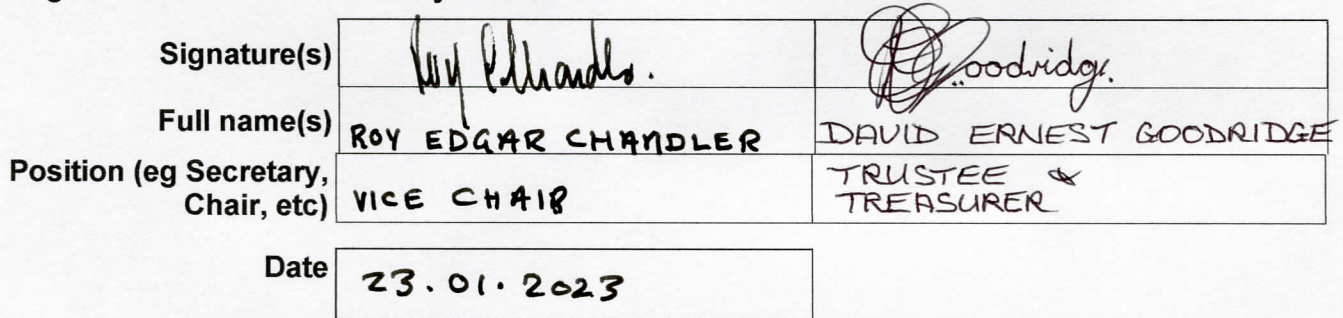 Signature(s) Roy E Chandler. Goodridge.
Full name(s) ROY EDGAR CHANDLER DAVID ERNEST GOODRIDGE
Position (eg Secretary, Chair, etc) VICE CHAIR TRUSTEE & TREASURER
Date 23.01.2023